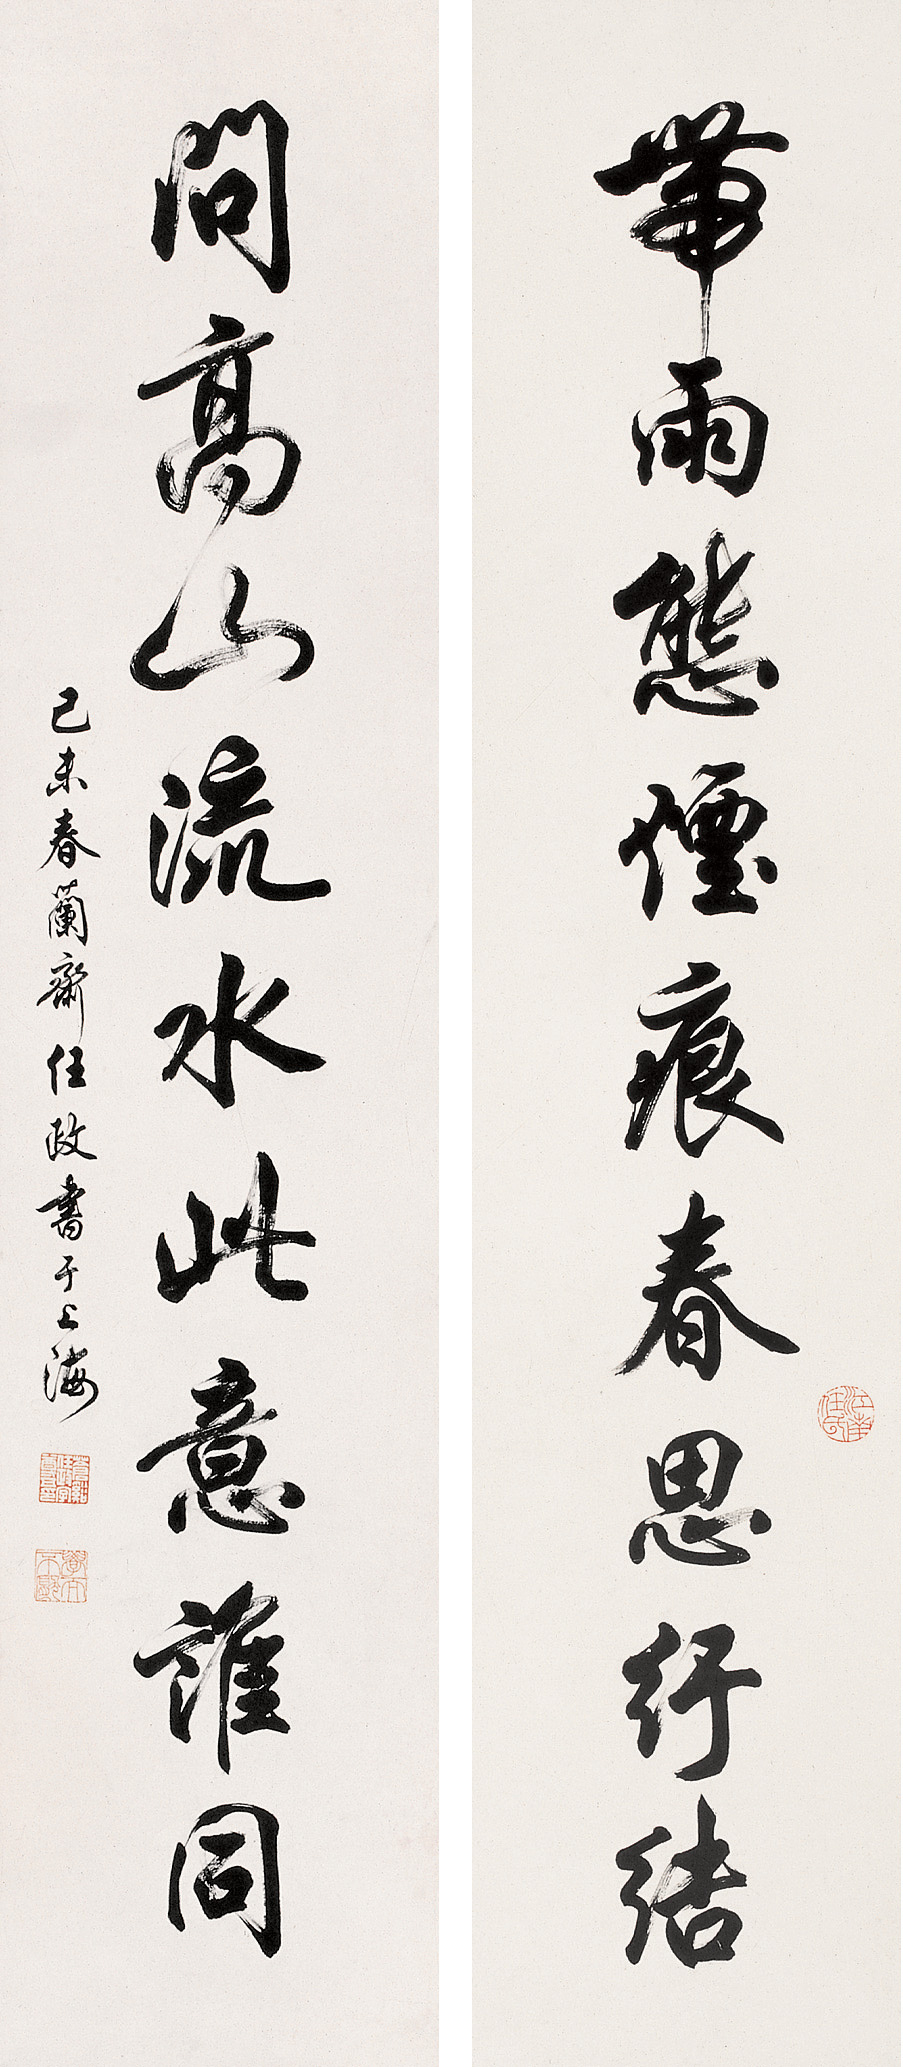 帶雨態煙痕春思紆結
問高山流水此意誰同
己未春蘭齋任政書于上海
江南任氏